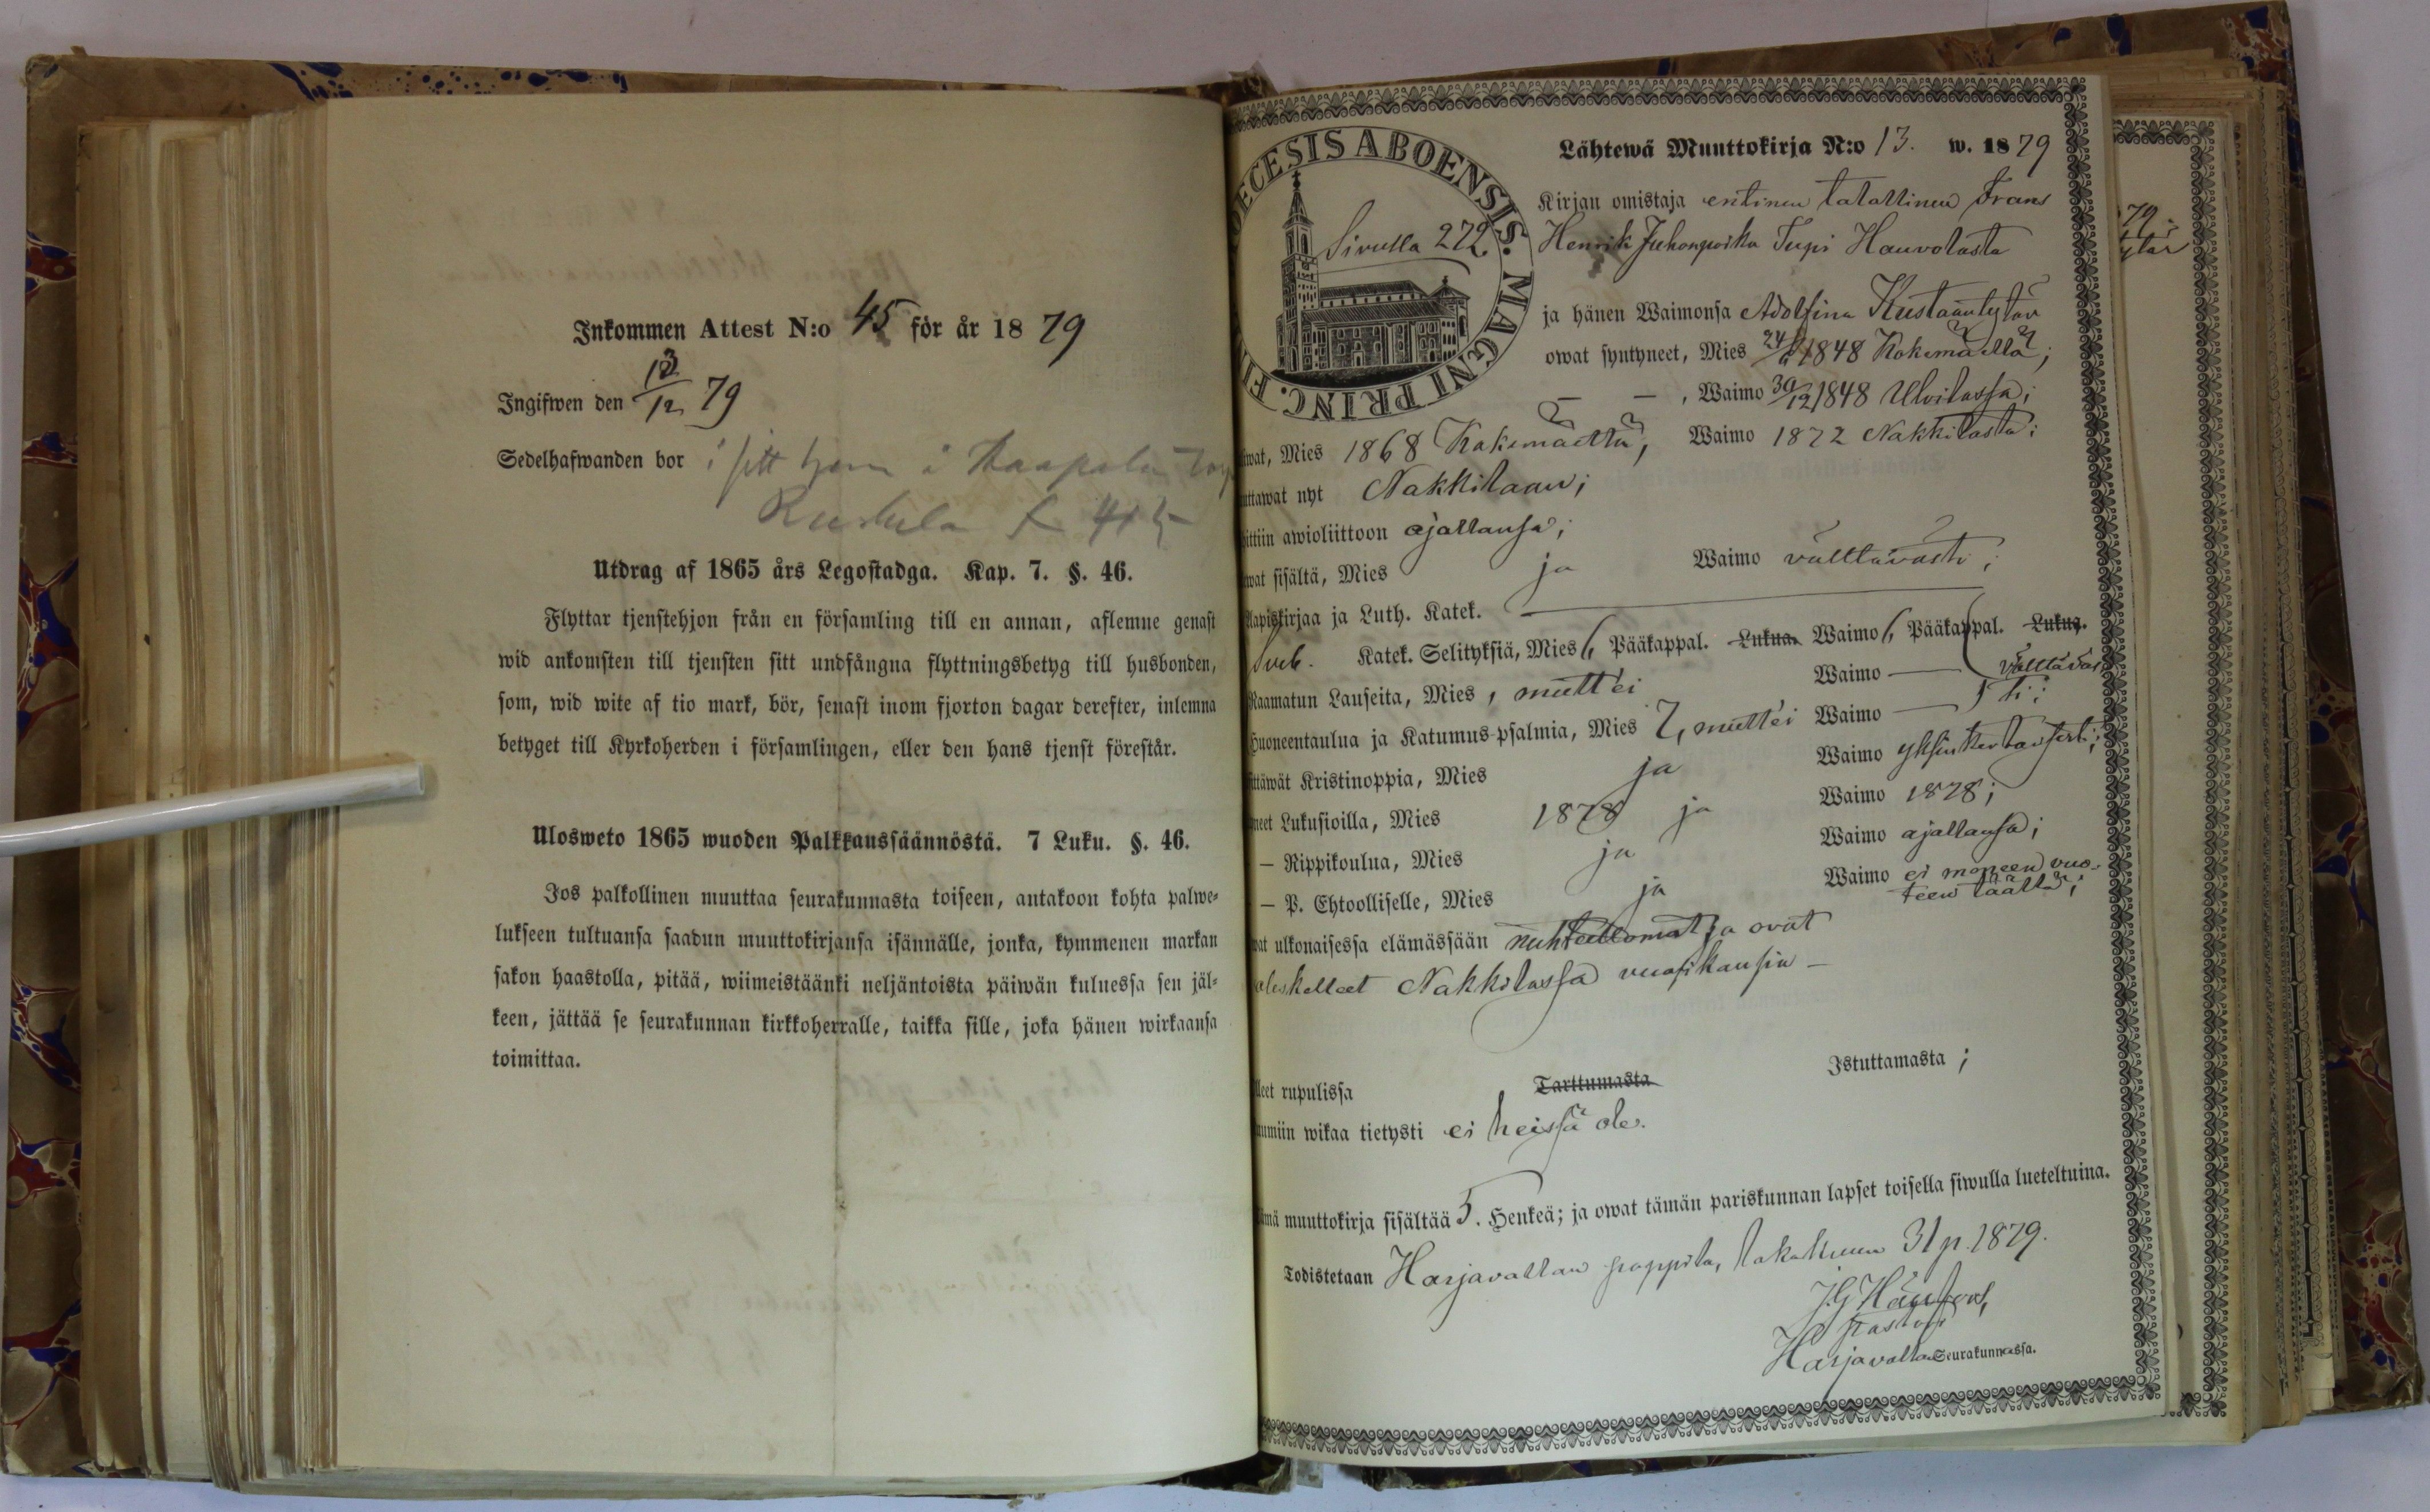 Inkommen Attest N:o 45 för år 1879
Ingifwen den 13/12 79
Sedelhafwanden bor i sitt hem i
Utdrag af 1865 års Legostadga. Kap. 7. §. 46.
Flyttar tjenstehjon från en församling till en annan, aflemne genast
wid ankomsten till tjensten sitt undfångna flyttningsbetyg till husbonden,
som, wid wite af tio mark, bör, senast inom fjorton dagar derefter, inlemna
betyget till Kyrkoherden i församlingen, eller den hans tjenst förestår.
Ulosweto 1865 wuoden Palkkaussäännöstä. 7 Luku. §. 46.
Jos palkollinen muuttaa seurakunnasta toiseen, antakoon kohta palwe-
lukseen tultuansa saadun muuttokirjansa isännälle, jonka, kymmenen markan
sakon haastolla, pitää, wiimeistäänki neljäntoista päiwän kuluessa sen jäl-
keen, jättää se seurakunnan kirkkoherralle, taikka sille, joka hänen wirkaansa
toimittaa.
ECESIS ABOENSIS. MAGNI PRINC. FI
Sivulla 272
Lähtewä Muuttokirja N:o 13. w. 1879
Kirjan omistaja entinen talollinen Frans
Henrik Juhonpoika Hauvolasta
ja hänen Waimonsa Adolfina Kustaantytär
owat syntyneet, Mies 1848 Kokemäellä;
— — , Waimo 30/12 1848 Ulvilassa;
wat, Mies 1868 Kokemäeltä, Waimo 1872 Nakkilasta;
uttawat nyt Nakkilaan;
ittiin awioliittoon ajallansa;
wat sisältä, Mies ja Waimo välttävästi;
lapiskirjaa ja Luth. Katek. —
Sveb. Katek. Selityksiä, Mies 6, Pääkappal. Lukua. Waimo 6, Pääkappal. Lukua.
Raamatun Lauseita, Mies, mutt'ei Waimo — välttäväs-
Huoneentaulua ja Katumus-psalmia, Mies 7, mutt'ei Waimo — ti;
ttäwät Kristinoppia, Mies ja Waimo yksinkertaisesti;
neet Lukusioilla, Mies 1878 ja Waimo 1878;
— Rippikoulua, Mies ja Waimo ajallansa;
— P. Ehtoolliselle, Mies ja Waimo ei moneen vuo-
teen täällä;
wat ulkonaisessa elämässään nuhteettomat ja ovat
oleskelleet Nakkilassa vuosikausia —
lleet rupulissa Tarttumasta Istuttamasta;
umiin wikaa tietysti ei heissä ole.
ämä muuttokirja sisältää 5. Henkeä; ja owat tämän pariskunnan lapset toisella siwulla lueteltuina.
Todistetaan Harjavallan pappila, lokakuun 31 p. 1879.
J.G.
Pastori
Harjavallan Seurakunnassa.
79